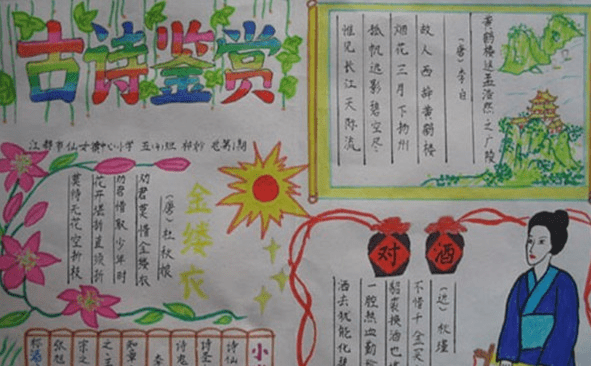 古诗鉴赏
江都市仙女镇中心小学 五(4)班
黄鹤楼送孟浩然之广陵
(唐)李白
故人西辞黄鹤楼
烟花三月下扬州
孤帆远影碧空尽
惟见长江天际流
金缕衣
(唐)杜秋娘
劝君莫惜金缕衣
劝君惜取少年时
花开堪折直须折
莫待无花空折枝
对酒
(近)秋瑾
不惜千金买
貂裘换酒也
一腔热血勤
酒去犹能化碧
小
诗仙
诗圣
诗鬼
知章
之
宗之
张旭
称酒